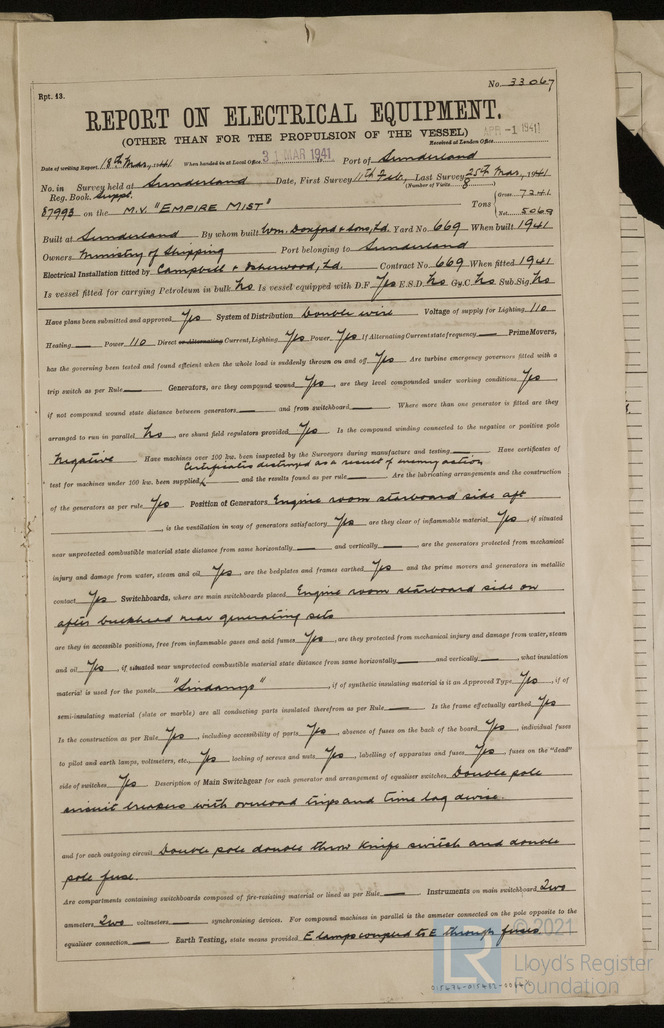 Rpt. 13.
No. 33067
REPORT ON ELECTRICAL EQUIPMENT.
(OTHER THAN FOR THE PROPULSION OF THE VESSEL)
APR -1 1941
Received at London Office
Date of writing Report 18th Mar, 1941 When handed in at Local Office 31 MAR 1941 Port of Sunderland
No. in Survey held at Sunderland Date, First Survey 11th Feb, Last Survey 25th Mar, 1941
Reg. Book. Suppt. (Number of Visits 8)
87993 on the M.V. "EMPIRE MIST" Tons { Gross 7241
Net 5069
Built at Sunderland By whom built Wm. Doxford & Sons, Ld. Yard No. 669 When built 1941
Owners Ministry of Shipping Port belonging to Sunderland
Electrical Installation fitted by Campbell & Isherwood, Ld. Contract No. 669 When fitted 1941
Is vessel fitted for carrying Petroleum in bulk No Is vessel equipped with D.F. Yes E.S.D. No Gy.C. No Sub.Sig. No
Have plans been submitted and approved Yes System of Distribution Double wire Voltage of supply for Lighting 110
Heating — Power 110 Direct or Alternating Current, Lighting Yes Power Yes If Alternating Current state frequency — Prime Movers,
has the governing been tested and found efficient when the whole load is suddenly thrown on and off Yes Are turbine emergency governors fitted with a
trip switch as per Rule — Generators, are they compound wound Yes, are they level compounded under working conditions Yes,
if not compound wound state distance between generators — and from switchboard — Where more than one generator is fitted are they
arranged to run in parallel No, are shunt field regulators provided Yes Is the compound winding connected to the negative or positive pole
Negative Have machines over 100 kw. been inspected by the Surveyors during manufacture and testing — Have certificates of
Certificates destroyed as a result of enemy action
test for machines under 100 kw. been supplied and the results found as per rule — Are the lubricating arrangements and the construction
of the generators as per rule Yes Position of Generators Engine room starboard side aft
, is the ventilation in way of generators satisfactory Yes are they clear of inflammable material Yes, if situated
near unprotected combustible material state distance from same horizontally — and vertically —, are the generators protected from mechanical
injury and damage from water, steam and oil Yes, are the bedplates and frames earthed Yes and the prime movers and generators in metallic
contact Yes Switchboards, where are main switchboards placed Engine room starboard side on
after bulkhead near generating sets
are they in accessible positions, free from inflammable gases and acid fumes Yes, are they protected from mechanical injury and damage from water, steam
and oil Yes, if situated near unprotected combustible material state distance from same horizontally — and vertically —, what insulation
material is used for the panels "Sindanyo", if of synthetic insulating material is it an Approved Type Yes, if of
semi-insulating material (slate or marble) are all conducting parts insulated therefrom as per Rule — Is the frame effectually earthed Yes
Is the construction as per Rule Yes, including accessibility of parts Yes, absence of fuses on the back of the board Yes, individual fuses
to pilot and earth lamps, voltmeters, etc., Yes locking of screws and nuts Yes, labelling of apparatus and fuses Yes, fuses on the "dead"
side of switches Yes Description of Main Switchgear for each generator and arrangement of equaliser switches Double pole
circuit breakers with overload trips and time lag devise.
and for each outgoing circuit Double pole double throw knife switch and double
pole fuse.
Are compartments containing switchboards composed of fire-resisting material or lined as per Rule — Instruments on main switchboard Two
ammeters Two voltmeters — synchronising devices. For compound machines in parallel is the ammeter connected on the pole opposite to the
equaliser connection — Earth Testing, state means provided E lamps coupled to E through fuses
© 2021
LR
Lloyd's Register
Foundation